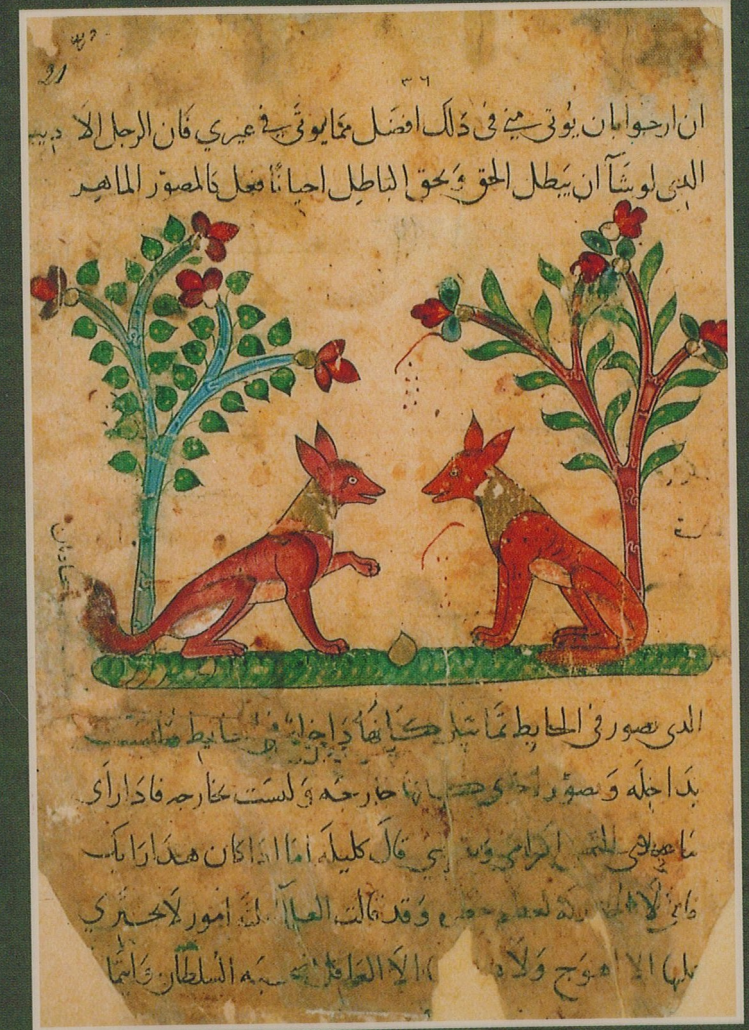 21
٣٦
ان ارجوا بان يؤتى مني فى ذلك افضل مما يوتى في غيري فان الرجل الا ديب
الدى لو شآ ان يبطل الحق و يحق الباطل احيانًا فعل كالمصوّر الماهر
الدى يصور فى الحايط تماثيل كانها داخلة في الحايط وليست
بداخله و يصوّر اخرى كانها خارجه و ليست بخارجه فادا راى
قال كليله اما ادا كان هدا رايك
فانى لعظم و قد قالت العلمآ ثلثه امور لا يجترى
عليها الا اهوج ولا الا العاقل صحبه السلطان وايتما